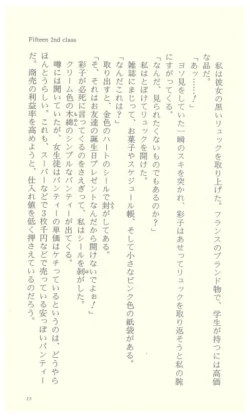 Fifteen 2nd class
私は彼女の黒いリュックを取り上げた。フランスのブランド物で、学生が持つには高価
な品だ。
「あッ……！」
ヨソ見をしていた一瞬のスキを突かれ、彩子はあせってリュックを取り返そうと私の腕
にすがってくる。
「なんだ、見られたくないものでもあるのか？」
私はとぼけてリュックを開けた。
雑誌にまじって、お菓子やスケジュール帳、そして小さなピンク色の紙袋がある。
「なんだこれは？」
取り出すと、金色のハートのシールで封がしてある。
「そ、それはお友達の誕生日プレゼントなんだから開けないでよぉ！」
彩子が必死に言ってくるのをさえぎって、私はシールを剥がした。
クリーム色の木綿のシンプルなパンティーが出てくる。
噂には聞いていたが、女生徒はパンティーの単価はケチっているというのは、どうやら
ほんとうらしい。これも、スーパーなどで3枚千円などで売っている安っぽいパンティー
だ。商売の利益率を高めようと、仕入れ値を低く押さえているのだろう。